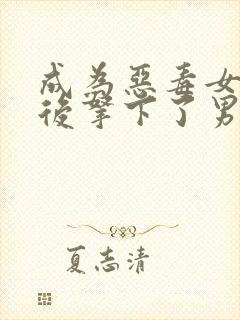 成為惡毒女
後拏下了男
夏志清